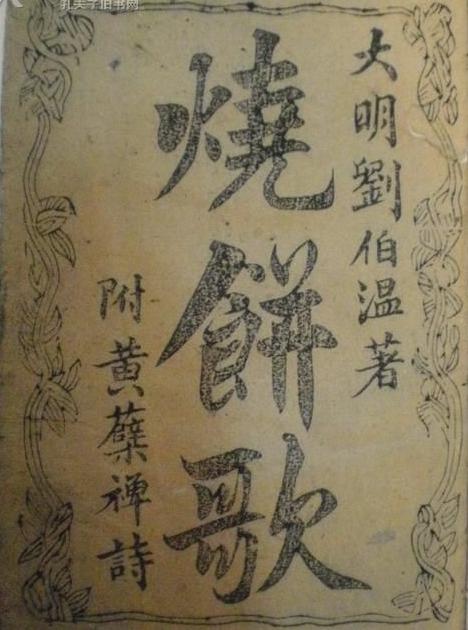 孔夫子旧书网
大明劉伯温著
燒餅歌
附黄蘗禅詩